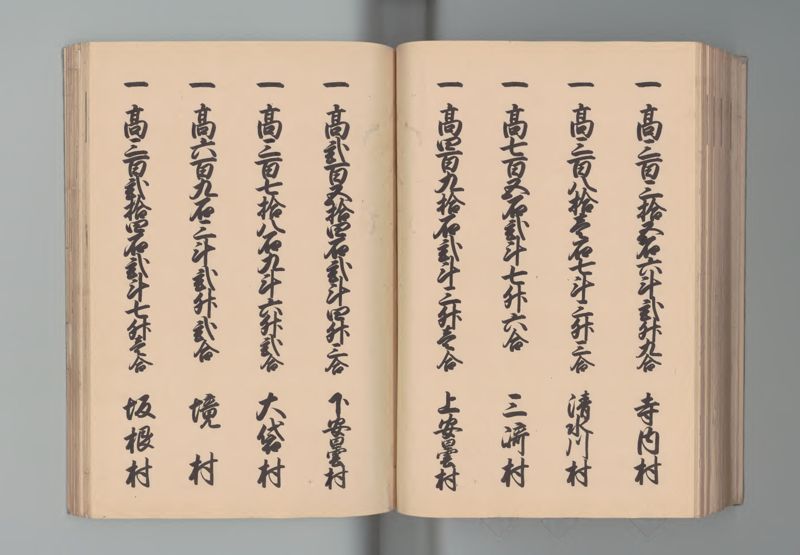 一 高三百三拾五石六斗弐升九合 寺内村
一 高三百八拾壱石七斗三升三合 清水川村
一 高七百五石弐斗七升六合 三﨑村
一 高四百九拾石弐斗三升壱合 上安曇村
一 高弐百五拾四石弐斗四升三合 下安曇村
一 高三百七拾八石九斗六升弐合 大袋村
一 高六百九石三斗弐升弐合 境村
一 高三百弐拾四石弐斗七升壱合 坂根村